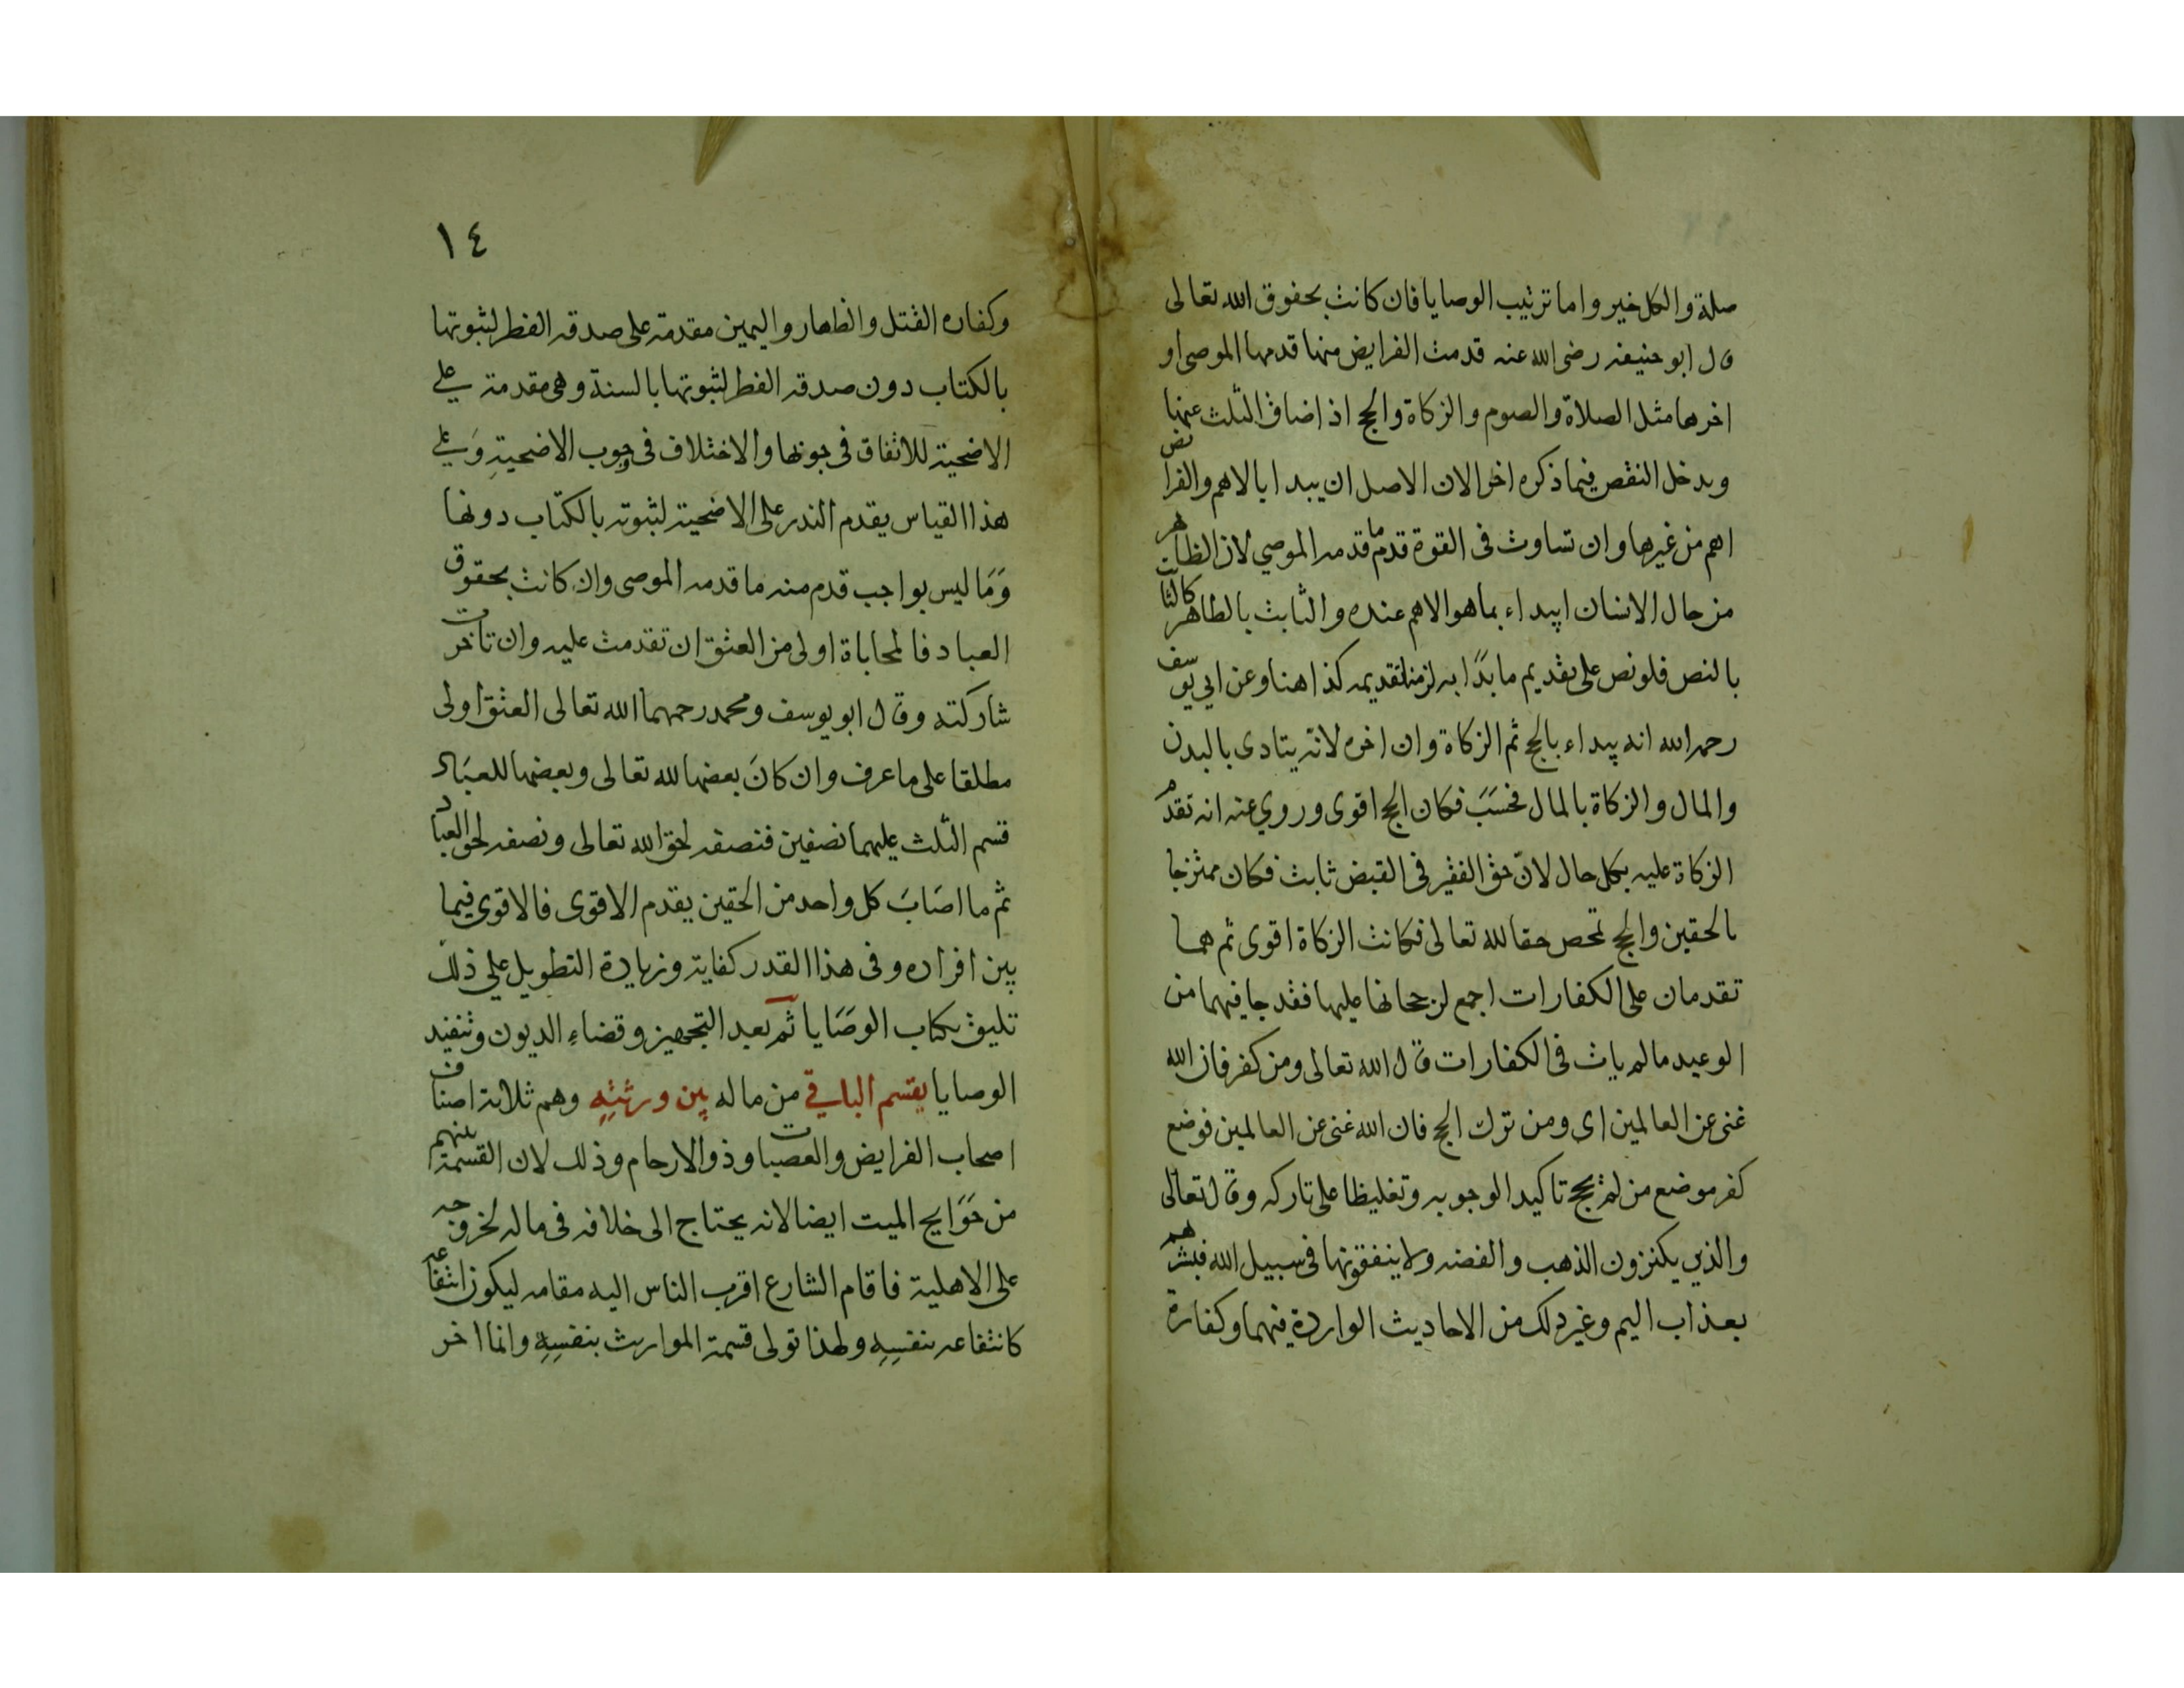 صلة والكل خير واما ترتيب الوصايا فان كانت بحقوق الله تعالى
قال ابو حنيفه رضى الله عنه قدمت الفرايض منها قدمها الموصى او
اخرها مثل الصلاة والصوم والزكاة والحج اذ اضاف الثلث عنها
ويدخل النقص فيما ذكره اخر الان الاصل ان يبدا بالاهم والفرائض
اهم من غيرها وان تساوت فى القوة قدم ما قدمه الموصي لان الظاهر
من حال الانسان ايبداء بما هو الاهم عنده والثابت بالظاهر كالثابت
بالنص فلو نص على تقديم ما بدا به لزمنا تقديمه كذا هنا وعن ابي يوسف
رحمه الله انه يبداء بالحج ثم الزكاة وان اخره لانه يتادى بالبدن
والمال والزكاة بالمال فحسب فكان الحج اقوى وروي عنه انه تقدم
الزكاة عليه بكل حال لان حق الفقير فى القبض ثابت فكان ممتزجا
بالحقين والحج تمحص حقا لله تعالى فكانت الزكاة اقوى ثم هما
تقدمان على الكفارات اجمع لرجحانها عليها فقد جا فيهما من
الوعيد ما لم يات فى الكفارات قال الله تعالى ومن كفر فان الله
غنى عن العالمين اى ومن ترك الحج فان الله غنى عن العالمين فوضع
كفر موضع من لم يحج تاكيد الوجوبه وتغليظا على تاركه وقال تعالى
والذين يكنزون الذهب والفضه ولا ينفقونها فى سبيل الله فبشرهم
بعذاب اليم وغير ذلك من الاحاديث الواردة فيهما وكفارة
١٤
وكفاره القتل والظهار واليمين مقدمة على صدقه الفطر لثبوتها
بالكتاب دون صدقه الفطر لثبوتها بالسنة وهى مقدمة على
الاضحية للاتفاق فى جوبها والاختلاف فى جوب الاضحية وعلى
هذا القياس يقدم النذر على الاضحية لثبوته بالكتاب دونها
وما ليس بواجب قدم منه ما قدمه الموصى وان كانت بحقوق
العباد فالمحاباة اولى من العتق ان تقدمت عليه وان تاخرت
شاركته وقال ابو يوسف ومحمد رحمهما الله تعالى العتق اولى
مطلقا على ما عرف وان كان بعضها لله تعالى وبعضها للعباد
قسم الثلث عليهما نصفين فنصفه لحق الله تعالى ونصفه لحق العباد
ثم ما اصاب كل واحد من الحقين يقدم الاقوى فالاقوى فيما
بين افراده وفى هذا القدر كفاية وزيادة التطويل على ذلك
تليق بكتاب الوصايا ثم بعد التجهيز وقضاء الديون وتنفيذ
الوصايا يقسم الباقي من ماله بين ورثته وهم ثلاثة اصناف
اصحاب الفرايض والعصبات وذو الارحام وذلك لان القسمة بينهم
من حوايج الميت ايضا لانه يحتاج الى خلافه فى ماله لخروجه
على الاهلية فاقام الشارع اقرب الناس اليه مقامه ليكون انتفاعه
كانتفاعه بنفسه ولهذا تولى قسمة المواريث بنفسه وانما اخر